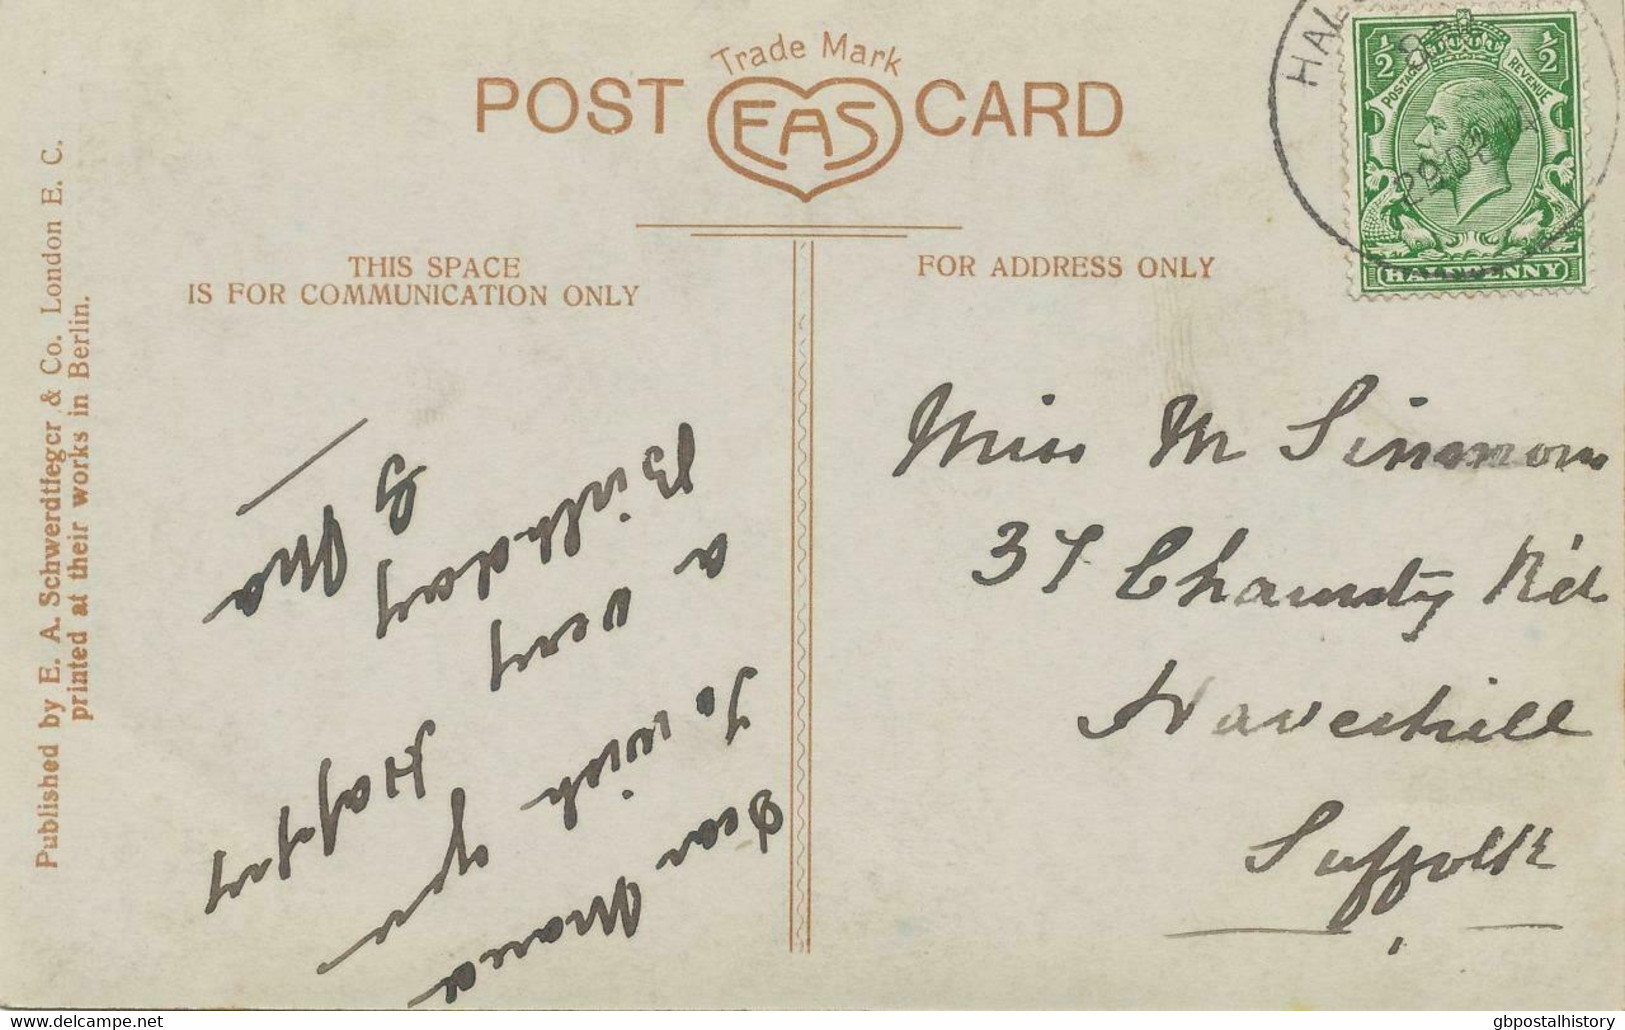 Trade Mark
POST EAS CARD
THIS SPACE
IS FOR COMMUNICATION ONLY
FOR ADDRESS ONLY
Published by E. A. Schwerdtfeger & Co. London E. C.
printed at their works in Berlin.
½ ½
POSTAGE REVENUE
HALFPENNY
HAL
Dear Maria
To wish you
a very Happy
Birthday
G Ma
Miss M Simmons
37 Chaunty Rd
Haverhill
Suffolk
www.delcampe.net
gbpostalhistory